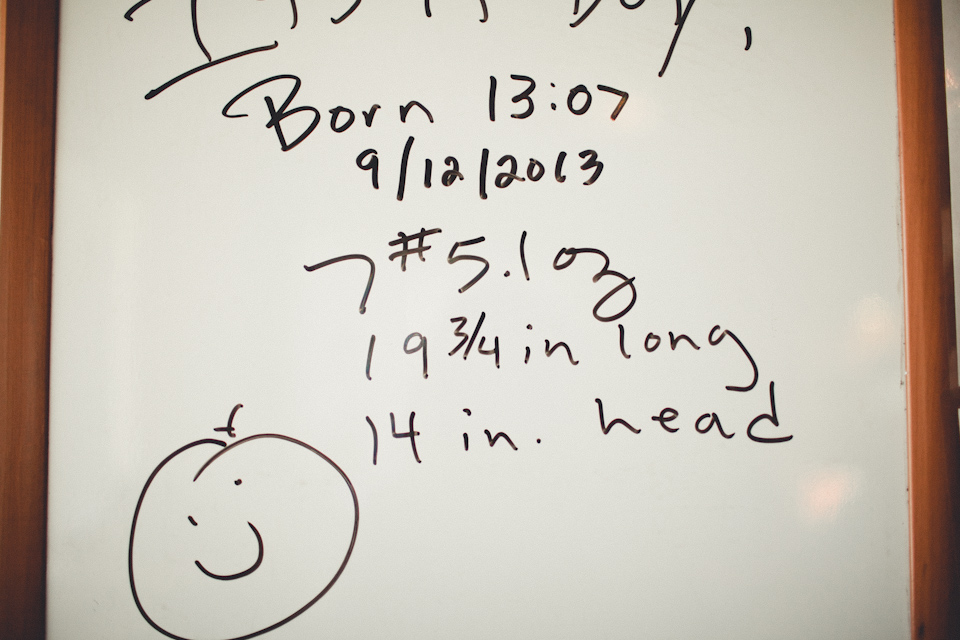 It's A Boy!
Born 13:07
9/12/2013
7# 5.1 oz
19 3/4 in long
14 in. head